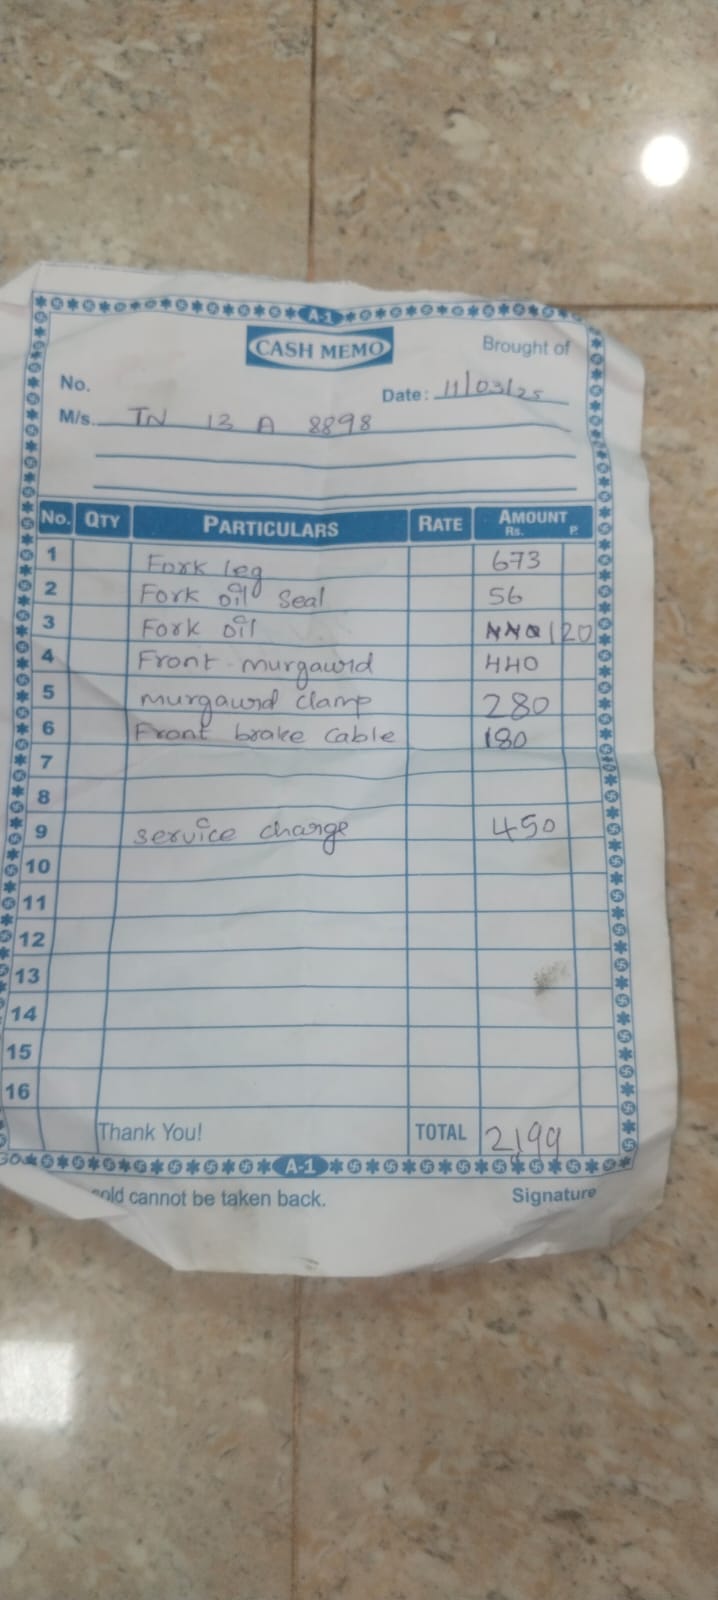 A-1
CASH MEMO
Brought of
No.
Date: 11/03/25
M/s. TN 13 A 8898
No. QTY PARTICULARS RATE AMOUNT Rs. P.
1 Fork leg 673
2 Fork oil seal 56
3 Fork oil 120
4 Front murgaurd 440
5 murgaurd clamp 280
6 Front brake cable 180
7
8
9 service charge 450
10
11
12
13
14
15
16
Thank You! TOTAL 2199
A-1
cannot be taken back. Signature